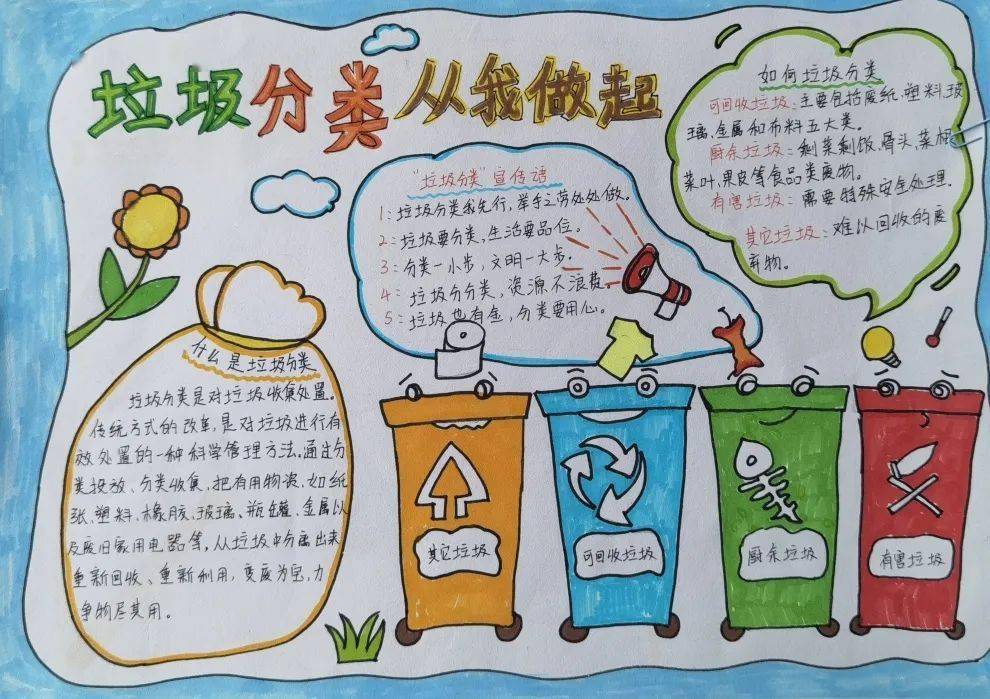 垃圾分类从我做起
"垃圾分类"宣传语
1:垃圾分类我先行,举手之劳处处做。
2:垃圾要分类,生活要品位。
3:分类一小步,文明一大步.
4:垃圾分分类,资源不浪费。
5:垃圾也有金,分类要用心。
如何垃圾分类
可回收垃圾:主要包括废纸、塑料、玻
璃、金属和布料五大类。
厨余垃圾:剩菜剩饭、骨头、菜根
菜叶、果皮等食品类废物。
有害垃圾:需要特殊安全处理.
其它垃圾:难以回收的废
弃物。
什么是垃圾分类
垃圾分类是对垃圾收集处置。
传统方式的改革,是对垃圾进行有
效处置的一种科学管理方法.通过分
类投放、分类收集,把有用物资,如纸
张、塑料、橡胶、玻璃、瓶罐、金属以
及废旧家用电器等,从垃圾中分离出来
重新回收、重新利用,变废为宝,力
争物尽其用。
其它垃圾
可回收垃圾
厨余垃圾
有害垃圾